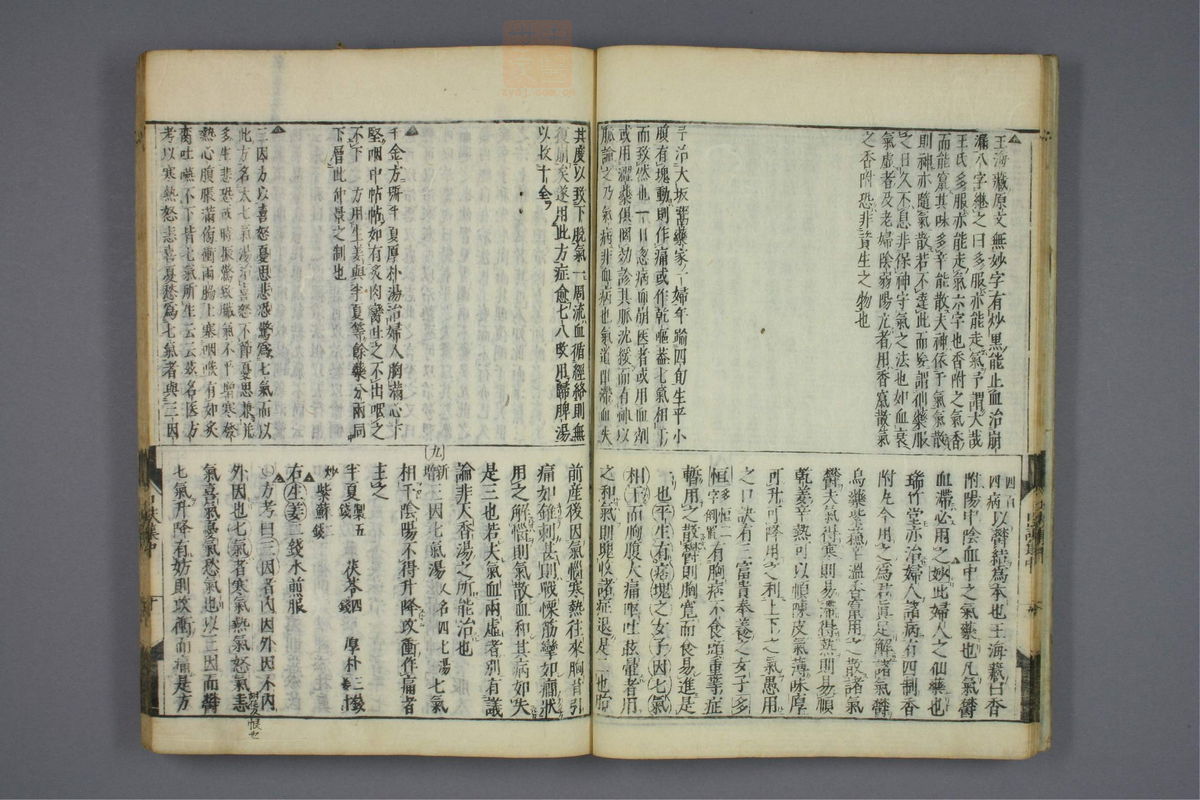 王海藏原文無妙字有炒黑能止血治崩
漏八字繼之曰多服亦能走氣予謂大哉
王氏多服亦能走氣六字也香附之氣香
而能竄其味多辛能散夫神依于氣氣散
則神亦隨氣散若不達此而妄謂利藥服
之日久不息非保神守氣之法也如血衰
氣虛者及老婦陰弱陽亢者用香竄散氣
之香附恐非資生之物也
予治大坂賣藥家一婦年踰四旬生平小
腹有塊動則作痛或作乾嘔蓋七氣相干
而致然也一日忽病血崩医者或用血剤
或用澀藥俱罔効診其脉沈緩而有神以
脉論之乃氣病非血病也氣道即滯血失
四百
四病以鬱結為本也王海藏曰香
附陽中陰血中之氣藥也凡氣鬱
血滯必用之妙此婦人之仙藥也
瑞竹堂亦治婦人諸病有四制香
附丸今用之為君真足解諸氣鬱
烏藥紫蘇辛溫香竄用之散諸氣
鬱夫氣得寒則易滯得熱則易順
乾姜辛熱可以頓陳皮氣薄味厚
可升可降用之利上下之氣愚用
之口訣有三富貴奉養之女子多
恒多恒二字細覧有胸痞不食頭重等症
暫用之散鬱則胸寛而食易進是
一也平生有痞塊之女子因七氣
相干而胸腹大痛嘔吐眩暈者用
之和氣則興收諸症退是二也治
其度以致下脱氣一周流血循經絡則無
復崩矣遂用此方症愈七八吹用歸脾湯
以收十全
千金方所半夏厚朴湯治婦人胸滿心下
堅咽中帖帖如有炙肉臠吐之不出咽之
不下一方用生姜與半夏等餘藥分兩同
下層此仲景之制也
三因方以喜怒憂思悲恐驚為七氣而以
此方名大七氣湯治喜怒不節憂思兼并
多生悲恐或時振驚致臟氣不平增寒發
熱心腹脹滿傍衝兩脇上塞咽喉有如炙
臠吐嚥不下皆七氣所生云云茲名医方
考以寒熱怒恚喜憂愁為七氣者與三因
前産後因氣惱寒熱往來胸背引
痛如錐刺甚則戰慄筋攣如癇狀
用之解惱則氣散血和其病如失
是三也若夫氣血兩虛者別有議
論非天香湯之所能治也
九
新増三因七氣湯又名四七湯七氣
相干陰陽不得升降攻衝作痛者
主之
半夏製五錢 茯苓四錢 厚朴三錢姜
炒 紫蘇錢
右生姜三錢水煎服
方考曰三因者內因外因不內
外因也七氣者寒氣熱氣怒氣恚
氣喜氣憂氣愁氣也以三因而鬱
七氣升降有妨則攻衝而痛是方